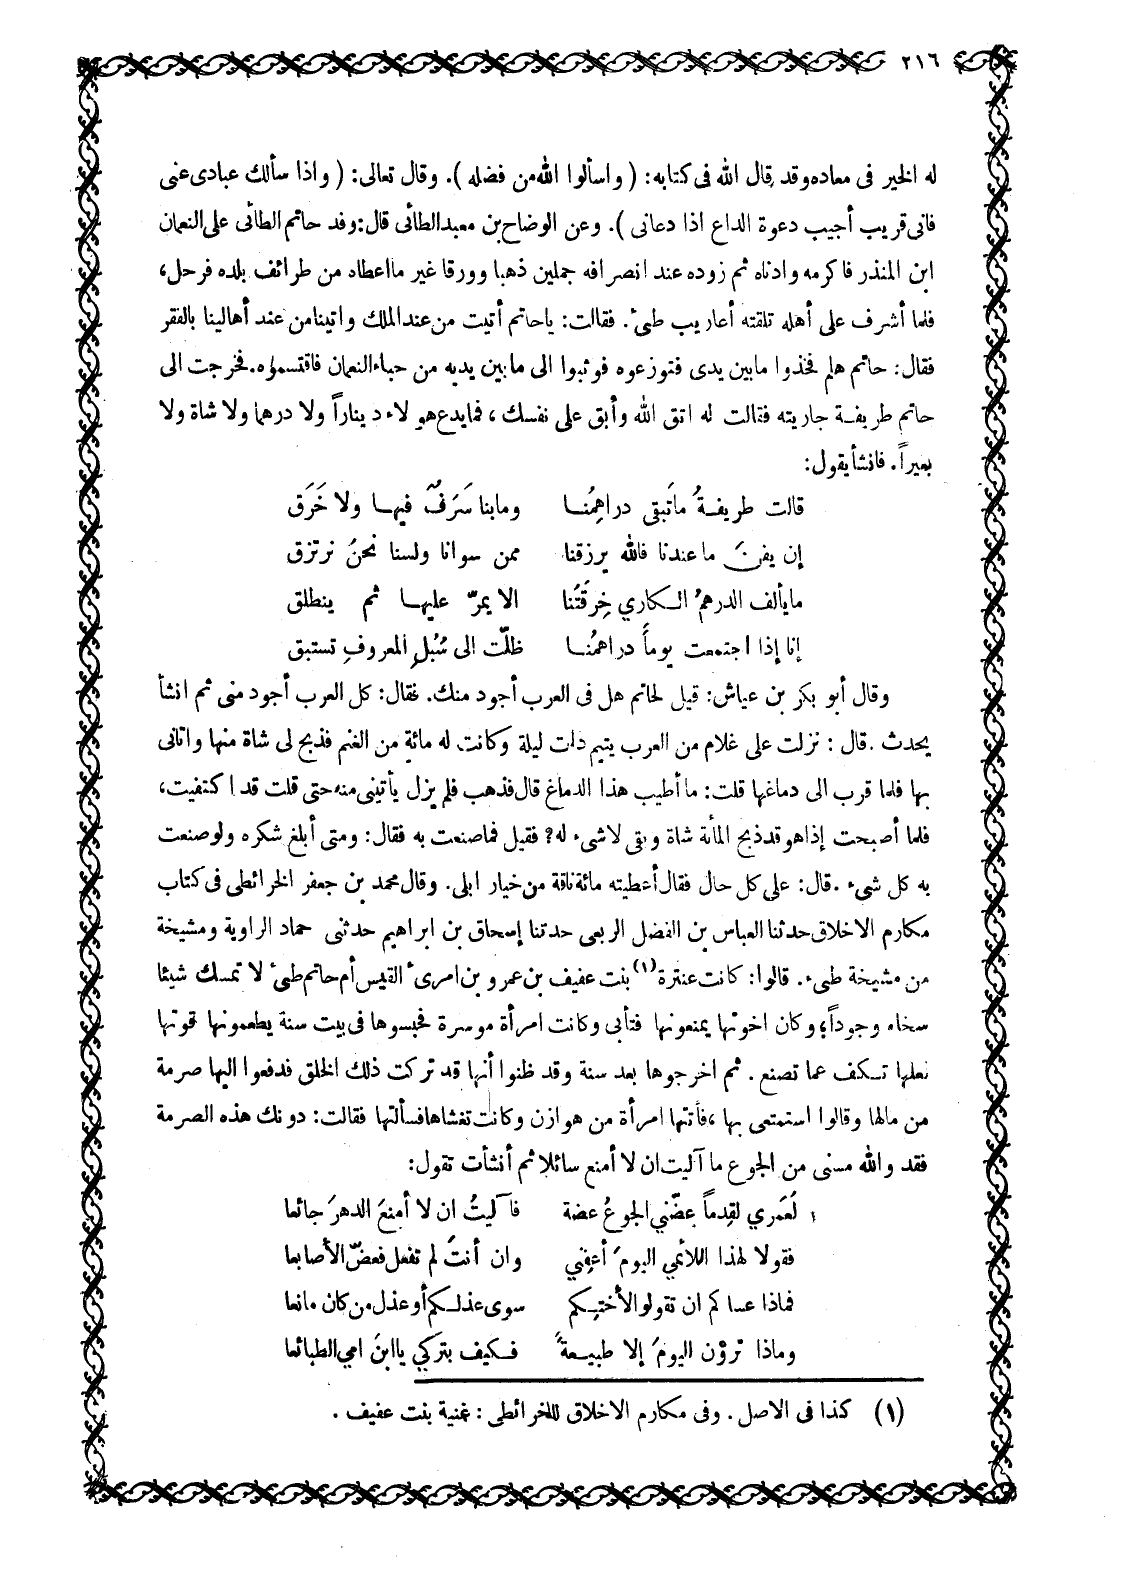 ٢١٦
له الخير فى معاده وقد قال الله فى كتابه: ( واسألوا الله من فضله ). وقال تعالى: ( واذا سألك عبادى عنى
فانى قريب أجيب دعوة الداع اذا دعانى ). وعن الوضاح بن معبد الطائى قال: وفد حاتم الطائى على النعمان
ابن المنذر فاكرمه وادناه ثم زوده عند انصرافه جملين ذهبا وورقا غير مااعطاد من طرائف بلده فرحل،
فلما أشرف على أهله تلقته أعاريب طىء. فقالت: ياحاتم أتيت من عند الملك واتينا من عند أهالينا بالفقر
فقال: حاتم هلم فخذوا مابين يدى فتوزعوه فوثبوا الى مابين يديه من حباء النعمان فاقتسموه. فخرجت الى
حاتم طريفة جاريته فقالت له اتق الله وأبق على نفسك، فما يدع هولاء ديناراً ولا درهما ولا شاة ولا
بعيراً. فانشأ يقول:
قالت طريفةُ ماتَبقى دراهمُنا وما بنا سَرَفٌ فيها ولا خَرَق
إن يفنَ ماعندنا فالله يرزقنا ممن سوانا ولسنا نحنُ نرتزق
مايألف الدرهمُ الكاري خِرقَتُنا الا يمرّ عليها ثم ينطلق
إنا إذا اجتمعت يوماً دراهمُنا ظلّت الى سُبُلِ المعروفِ تستبق
وقال أبو بكر بن عياش: قيل لحاتم هل فى العرب أجود منك. فقال: كل العرب أجود منى ثم انشأ
يحدث. قال: نزلت على غلام من العرب يتيم ذات ليلة وكانت له مائة من الغنم فذبح لى شاة منها واتانى
بها فلما قرب الى دماغها قلت: ماأطيب هذا الدماغ قال فذهب فلم يزل يأتينى منه حتى قلت قد اكتفيت،
فلما أصبحت إذا هو قد ذبح المأة شاة وبقى لاشىء له؟ فقيل فما صنعت به فقال: ومتى أبلغ شكره ولو صنعت
به كل شىء. قال: على كل حال فقال أعطيته مائة ناقة من خيار ابلى. وقال محمد بن جعفر الخرائطى فى كتاب
مكارم الاخلاق حدثنا العباس بن الفضل الربعى حدثنا إسحاق بن ابراهيم حدثنى حماد الراوية ومشيخة
من مشيخة طىء. قالوا: كانت عنترة (١) بنت عفيف بن عمرو بن امرىء القيس أم حاتم طىء لا تمسك شيئا
سخاء وجوداً؛ وكان اخوتها يمنعونها فتأبى وكانت امرأة موسرة فحبسوها فى بيت سنة يطعمونها قوتها
لعلها تكف عما تصنع. ثم اخرجوها بعد سنة وقد ظنوا أنها قد تركت ذلك الخلق فدفعوا اليها صرمة
من مالها وقالوا استمتعى بها، فأتتها امرأة من هوازن وكانت تغشاها فسألتها فقالت: دونك هذه الصرمة
فقد والله مسنى من الجوع ما آليت ان لا أمنع سائلا ثم أنشأت تقول:
لَعَمري لقِدماً عضّني الجوعُ عضة فآليتُ ان لا أمنعَ الدهرَ جائعا
فقولا لهذا اللائمي اليومَ أعفِني وان أنتَ لم تفعل فعضّ الأصابعا
فماذا عساكم ان تقولوا لأختكم سوى عذلكم أو عذل من كان مانعا
وماذا ترَون اليومَ إلا طبيعةً فكيف بتركي ياابنَ امي الطبائعا
(١) كذا فى الاصل. وفى مكارم الاخلاق للخرائطى: غنية بنت عفيف.